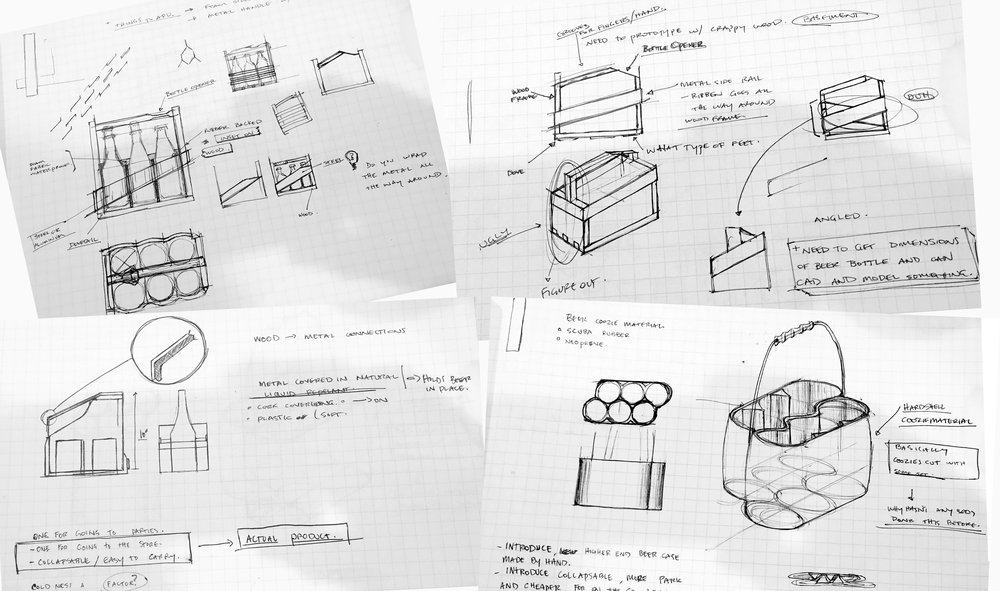 + THINGS TO ADD
→ METAL HANDLE
BOTTLE OPENER
RUBBER BACKED
INSET ON
WOOD
WATERPROOF
STEEL OR
ALUMINUM
STEEL
WOOD
DO YOU WRAP
THE METAL ALL
THE WAY AROUND.
GROOVES
FOR FINGERS/HAND.
NEED TO PROTOTYPE W/ CRAPPY WOOD.
BASEMENT
BOTTLE OPENER
WOOD
FRAME
METAL SIDE RAIL
- RIBBON GOES ALL
THE WAY AROUND
WOOD FRAME.
WHAT TYPE OF FEET.
UGLY
FIGURE OUT.
ANGLED.
+ NEED TO GET DIMENSIONS
OF BEER BOTTLE AND CAN
CAD AND MODEL SOMETHING.
WOOD → METAL CONNECTIONS
METAL COVERED IN NATURAL
LIQUID REPELANT
→ HOLDS BEER
IN PLACE.
CORK COVERING.
PLASTIC
SOFT.
10"
ONE FOR GOING TO PARTIES.
- ONE FOR GOING TO THE STORE.
- COLLAPSABLE / EASY TO CARRY.
→ ACTUAL PRODUCT.
COLDNESS A FACTOR?
BEER COOZIE MATERIAL
SCUBA RUBBER
NEOPRENE.
HARDSHELL
COOZIE MATERIAL
BASICALLY
COOZIES CUT WITH
WHY HASN'T ANYBODY
DONE THIS BEFORE.
- INTRODUCE, NEW HIGHER END BEER CASE
MADE BY HAND.
- INTRODUCE COLLAPSABLE, MORE
AND CHEAPER FOR ON THE